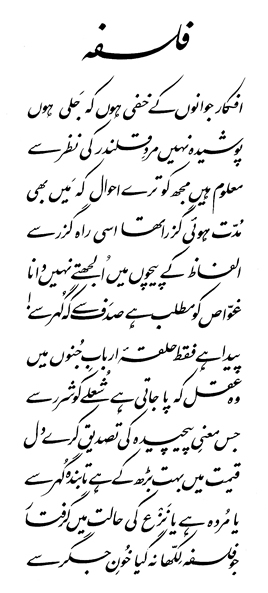 فلسفہ
افکار جوانوں کے خفی ہوں کہ جَلی ہوں
پوشیدہ نہیں مردِ قلندر کی نظر سے
معلوم ہیں مجھ کو ترے احوال کہ مَیں بھی
مُدّت ہوئی گزرا تھا اسی راہ گزر سے
الفاظ کے پیچوں میں اُلجھتے نہیں دانا
غوّاص کو مطلب ہے صدَف سے کہ گُہر سے!
پیدا ہے فقط حلقۂ اربابِ جُنوں میں
وہ عقل کہ پا جاتی ہے شُعلے کو شرر سے
جس معنیِ پیچیدہ کی تصدیق کرے دل
قیمت میں بہت بڑھ کے ہے تابندہ گُہر سے
یا مُردہ ہے یا نَزْع کی حالت میں گرفتار
جو فلسفہ لِکھّا نہ گیا خُونِ جگر سے